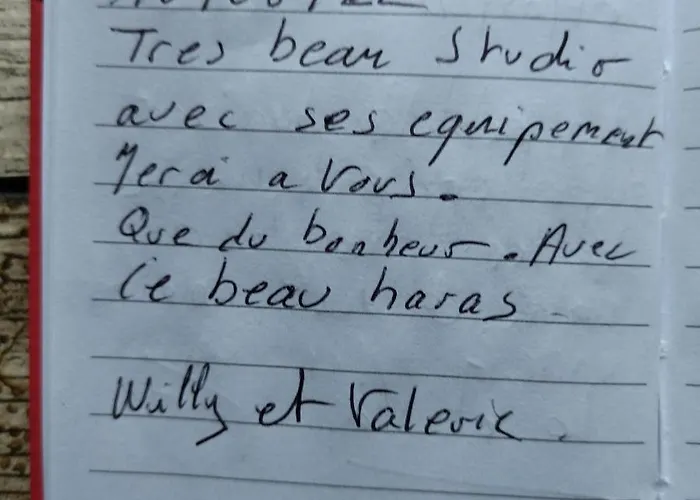 Tres beau Studio
avec ses equipement
Merci a Vous.
Que du bonheur. Avec
ce beau haras
Willy et Valerie.